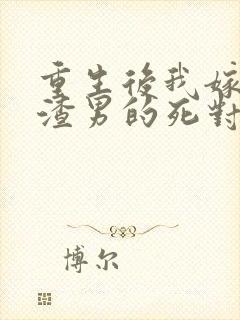 重生後我嫁
渣男的死對
博尔